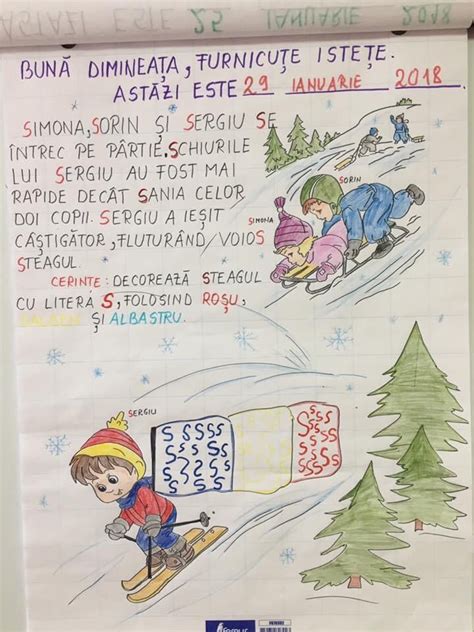 ASTĂZI ESTE 25 IANUARIE 2018
BUNĂ DIMINEAȚA, FURNICUȚE ISTEȚE.
ASTĂZI ESTE 29 IANUARIE 2018
SIMONA, SORIN ȘI SERGIU SE
ÎNTREC PE PÂRTIE. SCHIURILE
LUI SERGIU AU FOST MAI
RAPIDE DECÂT SANIA CELOR
DOI COPII. SERGIU A IEȘIT
CÂȘTIGĂTOR, FLUTURÂND VOIOS
STEAGUL.
CERINȚE: DECOREAZĂ STEAGUL
CU LITERĂ S, FOLOSIND ROȘU,
GALBEN ȘI ALBASTRU.
SORIN
SIMONA
SERGIU
S S S S S
S S S S
S S S S S
S S S S